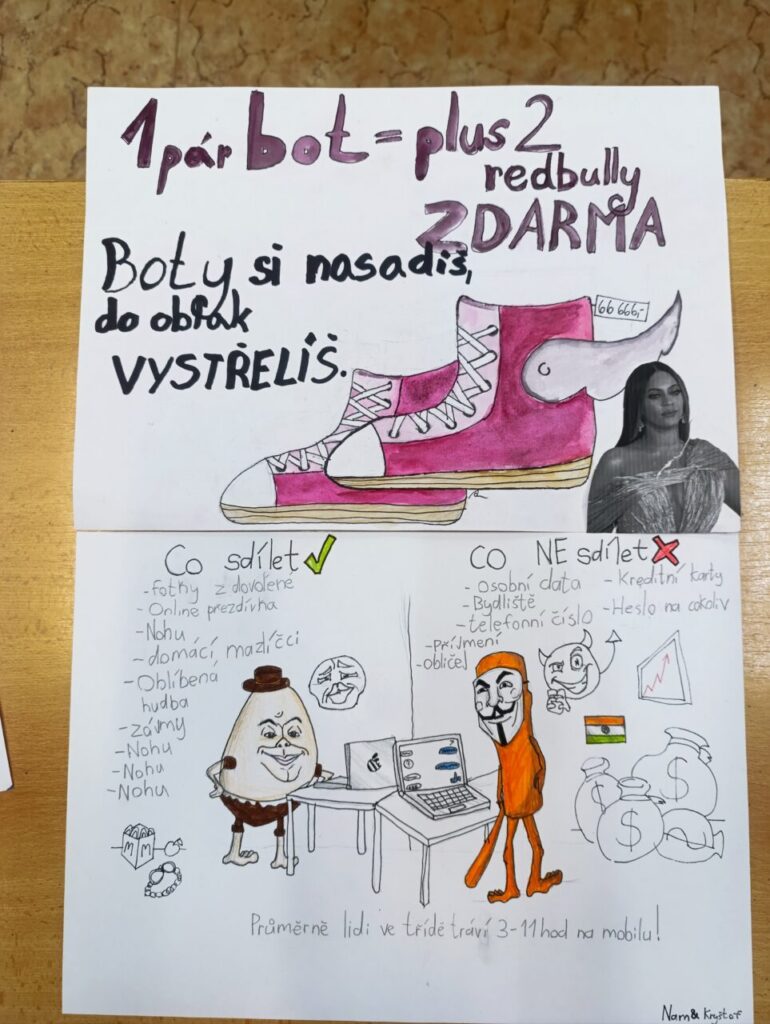 1 pár bot = plus 2
redbully
ZDARMA
Boty si nasadíš,
do oblak
VYSTŘELÍŠ.
66 666,-
Co sdílet
-fotky z dovolené
-Online přezdívka
-Nohu
-domácí mazlíčci
-Oblíbená
hudba
-zájmy
-Nohu
-Nohu
-Nohu
CO NE sdílet
-Osobní data
-Bydliště
-telefonní číslo
-příjmení
-obličej
-Kreditní karty
-Heslo na cokoliv
M M
$
$
$
Průměrně lidi ve třídě tráví 3-11 hod na mobilu!
Nam & Kryštof